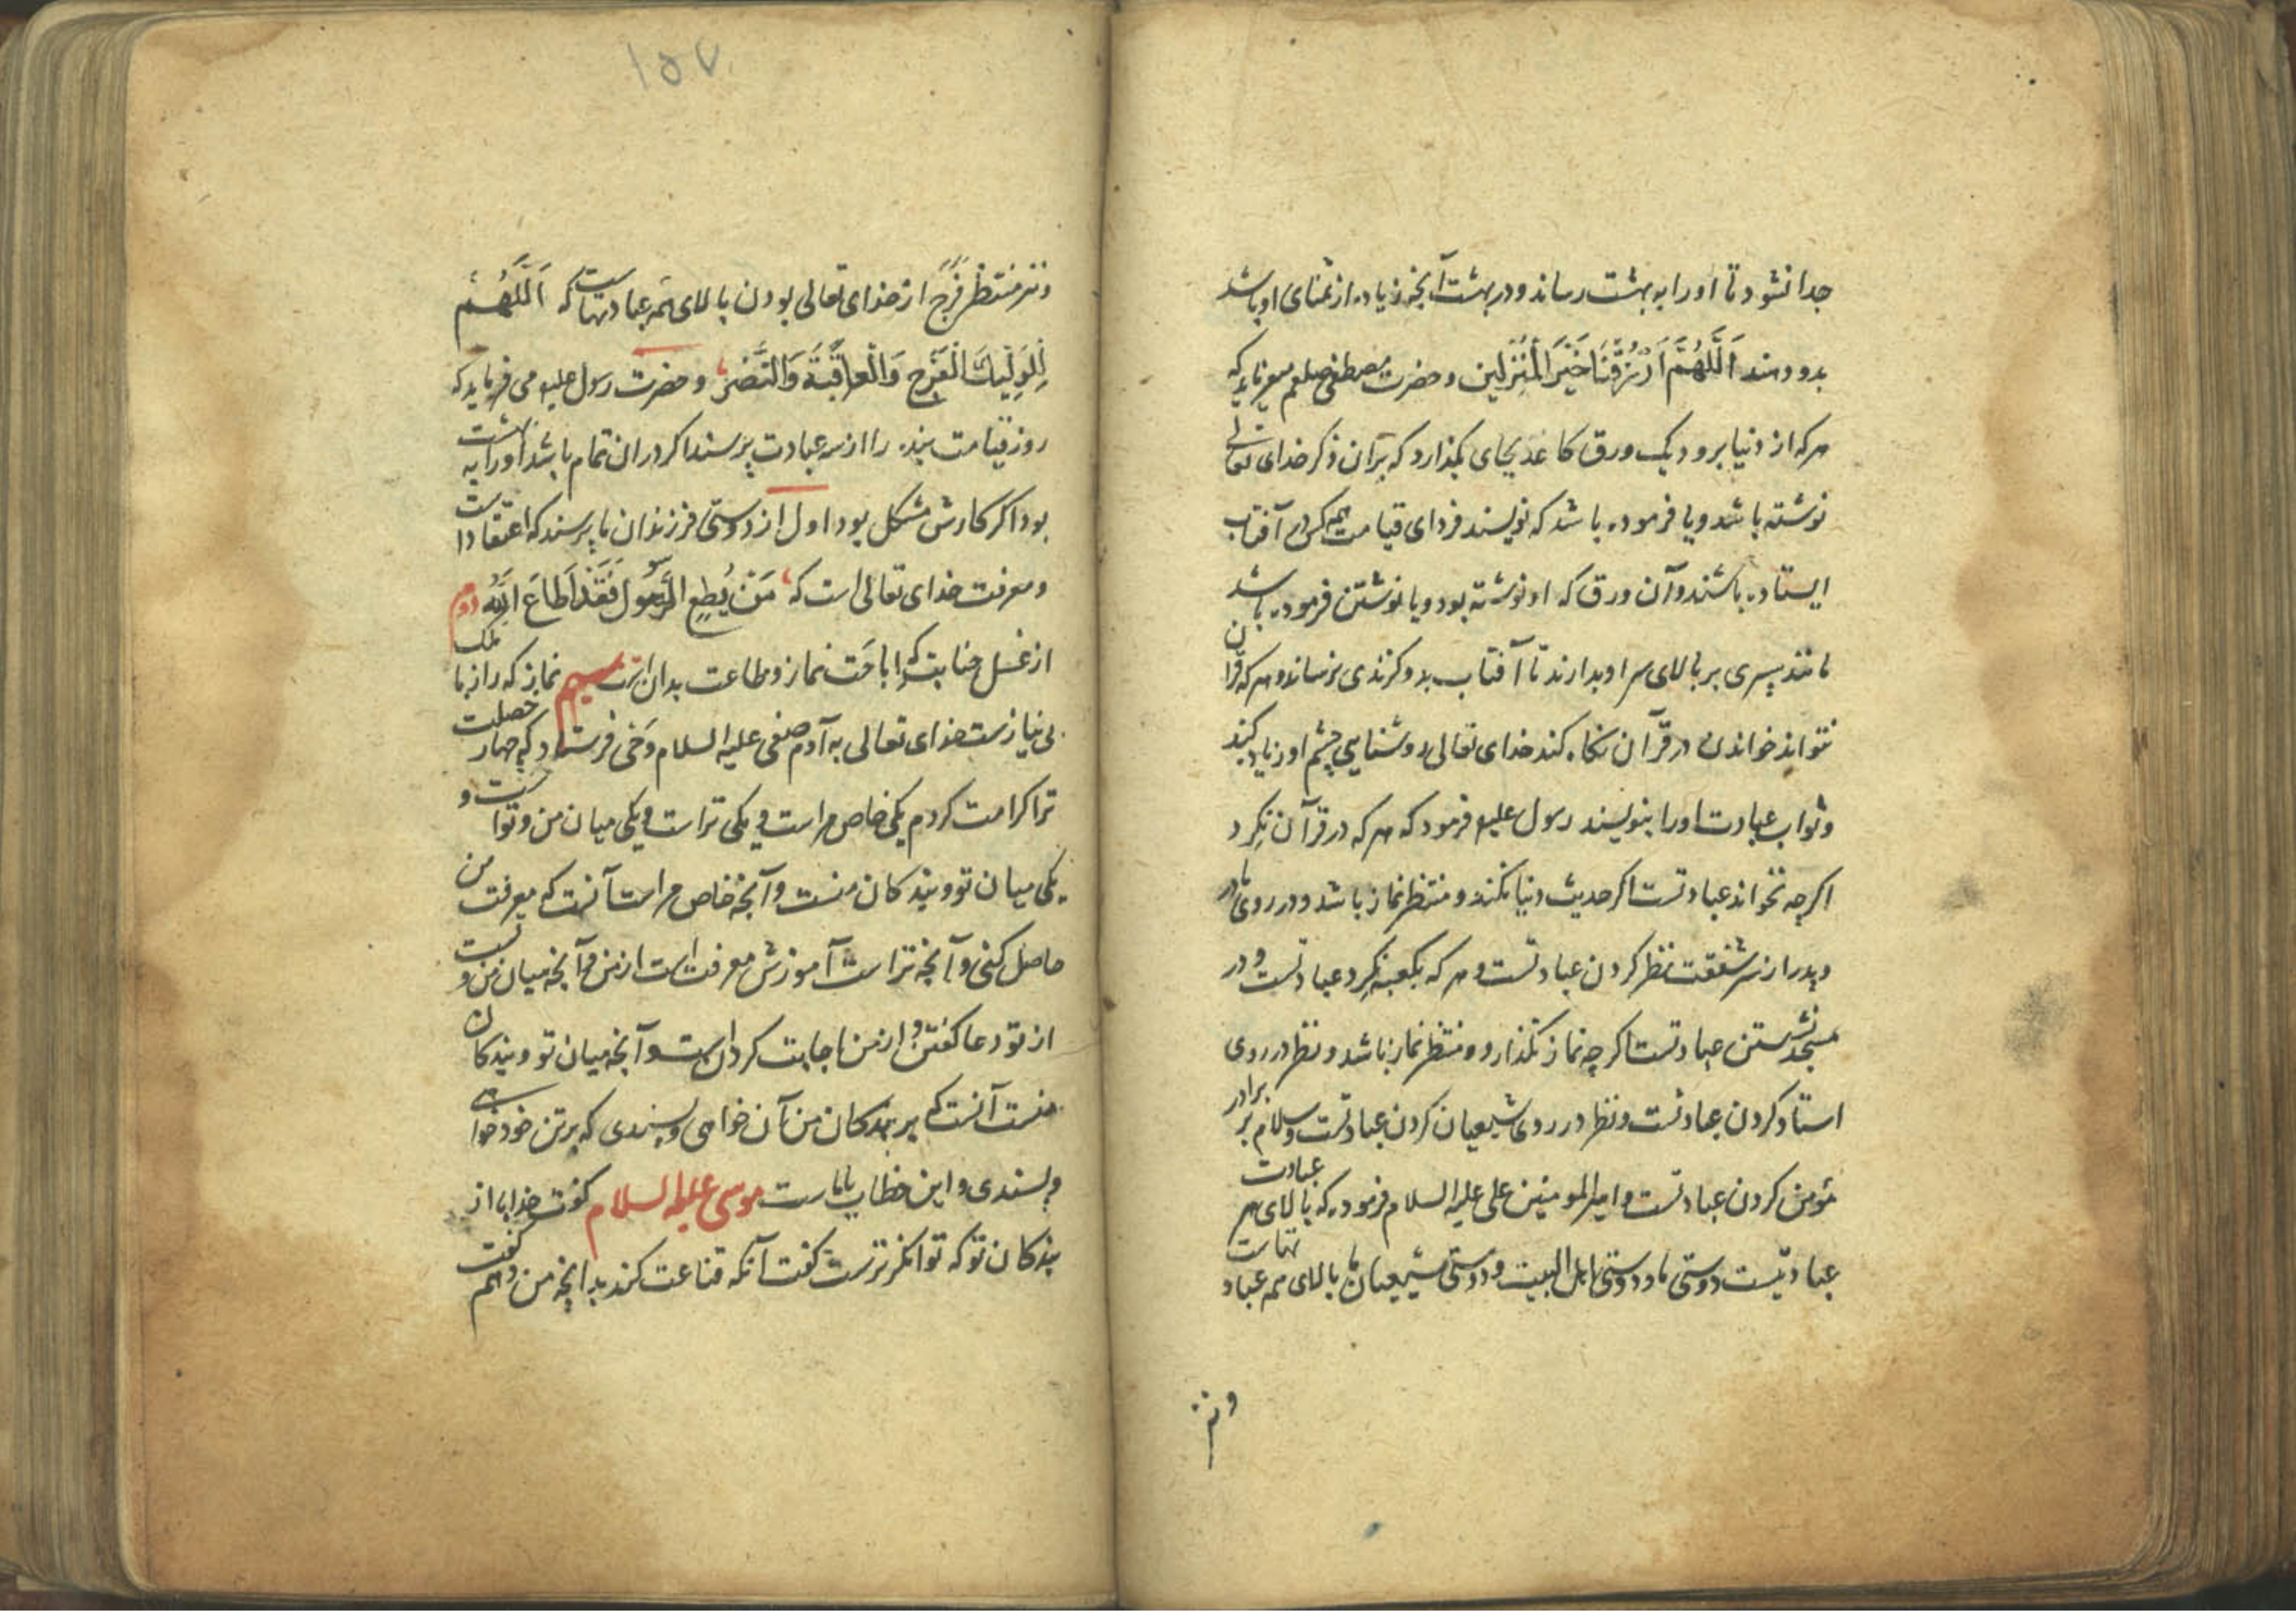 جدا نشود تا اورا به بهشت رساند و در بهشت آنچه زیاده از تمنای او باشد
بدو دهند اَللّهُمَّ اَرْزُقْنَا خَیْرَ الْمُنْزِلین و حضرت مصطفی صلعم میفرماید که
هر که از دنیا برود یک ورق کاغذ بجای بگذارد که بران ذکر خدای تعالی
نوشته باشد ویا فرموده باشد که نویسند فردای قیامت همه کس در آفتاب
ایستاده باشند و آن ورق که او نوشته بود و یا نوشتن فرموده باشد
مانند سپری بر بالای سر او بدارند تا آفتاب بدو گزندی نرساند و هر که قرآن
نتواند خواندن در قرآن نگاه کند خدای تعالی روشنایی چشم او زیاد کند
و ثواب عبادت اورا بنویسند رسول علیه فرمود که هر که در قرآن نگرد
اگرچه نخواند عبادتست اگر حدیث دنیا نکند و منتظر نماز باشد و در روی مادر
و پدر از سر شفقت نظر کردن عبادتست و هر که بکعبه نگرد عبادتست و در
مسجد نشستن عبادتست اگرچه نماز نگذارد و منتظر نماز باشد و نظر در روی
استاد کردن عبادتست و نظر در روی شیعیان کردن عبادتست و سلام بر برادر
مؤمن کردن عبادتست و امیر المومنین علی علیه السلام فرموده که بالای هر عبادت
عبادتیست دوستی ما و دوستی اهل البیت و دوستی شیعیان ما بالای همه عبادتهاست
ونیز
۱۵۷
ونیز منتظر فرج از خدای تعالی بودن بالای همه عبادتهاست که اَللّهُمَّ
لِوَلِیِّكَ الْفَرَجِ وَالْعاقِبَةَ وَالنَّصْرَ و حضرت رسول علیه می فرماید که
روز قیامت بنده را از سه عبادت پرسند اگر دران تمام باشد اورا به بهشت
بود اگر کارش مشکل بود اول از دوستی فرزندان ما پرسند که اعتقاد است
و معرفت خدای تعالی است که مَنْ یُطِعِ الرَّسُولَ فَقَدْ اَطاعَ اللّهَ دوم
از غسل جنابت که اباحَت نماز و طاعت بدان است سیم نماز که راز با ملک
بی نیازست خدای تعالی به آدم صفی علیه السلام وَحی فرستاد که چهار خصلت
ترا کرامت کردم یکی خاص مراست و یکی تراست و یکی میان من و تواست و
یکی میان تو و بندکان منست و آنچه خاص مراست آنست که معرفت من
حاصل کنی و آنچه تراست آموزش معرفت است از من و آنچه میان من و تست
از تو دعا گفتن و از من اجابت کردن است و آنچه میان تو و بندکان
منست آنست که بر بندکان من آن خواهی و پسندی که بر تن خود خواهی
و پسندی و این خطاب با ماست موسی علیه السلام گفت خدایا از
بندکان تو که توانگرترست گفت آنکه قناعت کند بدانچه من دهم گفت